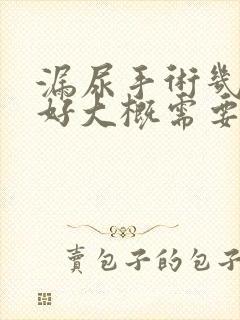 漏尿手術幾
好大概需要
賣包子的包子